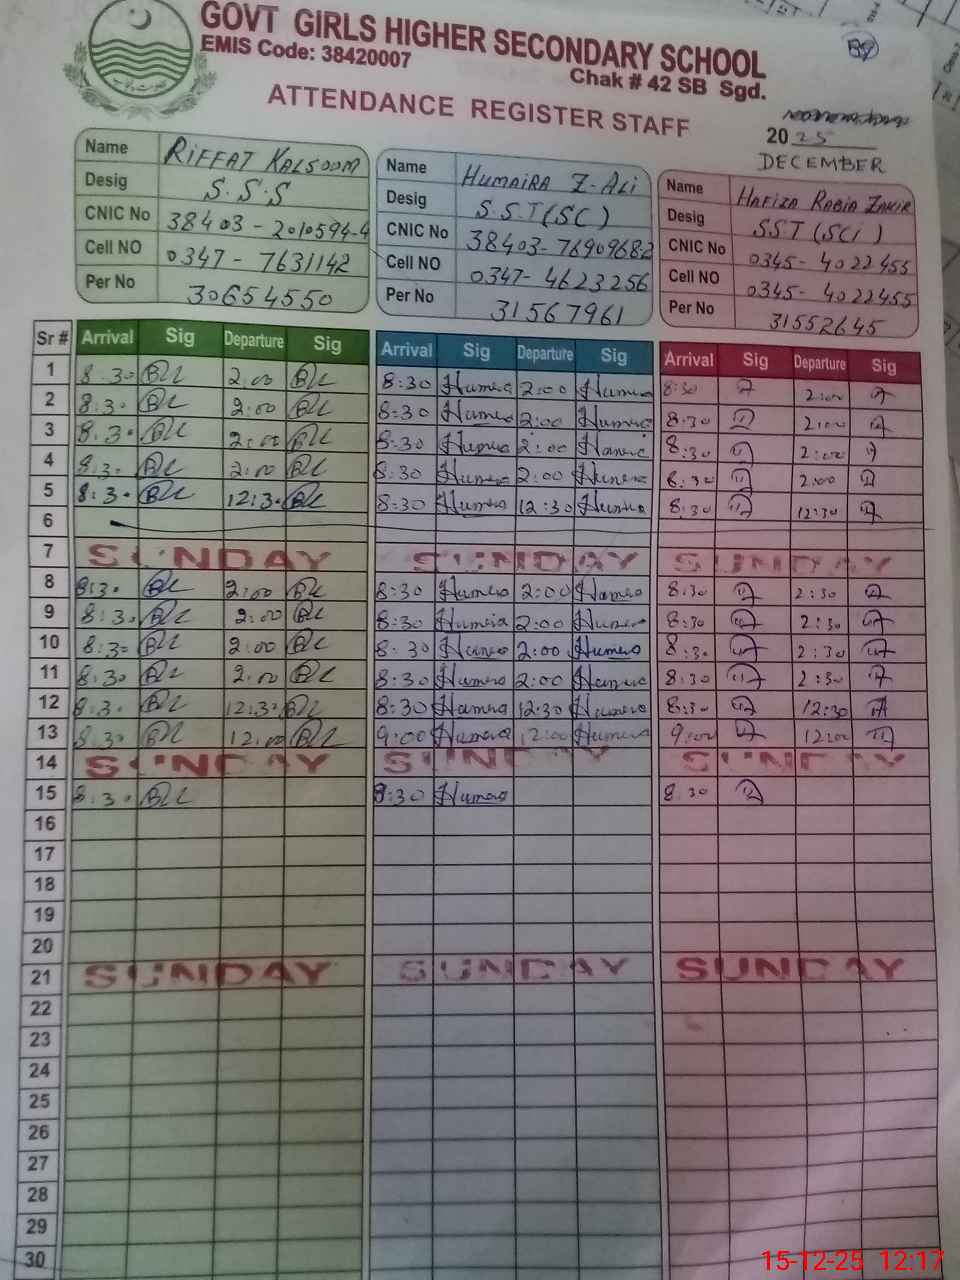 GOVT GIRLS HIGHER SECONDARY SCHOOL
EMIS Code: 38420007
Chak # 42 SB Sgd.
ATTENDANCE REGISTER STAFF
2025
DECEMBER
Name RIFFAT KALSOOM
Desig S.S.S
CNIC No 38403-2010594-4
Cell NO 0347-7631142
Per No 30654550
Name HUMAIRA Z-ALI
Desig S.S.T(SC)
CNIC No 38403-76909682
Cell NO 0347-4623256
Per No 31567961
Name HAFIZA RABIA ZAKIR
Desig SST (SCI)
CNIC No 0345-4022455
Cell NO 0345-4022455
Per No 31552645
Sr # Arrival Sig Departure Sig Arrival Sig Departure Sig Arrival Sig Departure Sig
1 8:30 2:00 8:30 Humera 2:00 Humera 8:30 2:00
2 8:30 2:00 8:30 Humera 2:00 Humera 8:30 2:00
3 8:30 2:00 8:30 Humera 2:00 Humera 8:30 2:00
4 8:30 2:00 8:30 Humera 2:00 Humera 8:30 2:00
5 8:30 12:30 8:30 Humera 12:30 Humera 8:30 12:30
6
7 SUNDAY SUNDAY SUNDAY
8 8:30 2:00 8:30 Humera 2:00 Humera 8:30 2:30
9 8:30 2:00 8:30 Humera 2:00 Humera 8:30 2:30
10 8:30 2:00 8:30 Humera 2:00 Humera 8:30 2:30
11 8:30 2:00 8:30 Humera 2:00 Humera 8:30 2:30
12 8:30 12:30 8:30 Humera 12:30 Humera 8:30 12:30
13 8:30 12:00 9:00 Humera 12:00 Humera 9:00 12:00
14 SUNDAY SUNDAY SUNDAY
15 8:30 8:30 Humera 8:30
16
17
18
19
20
21 SUNDAY SUNDAY SUNDAY
22
23
24
25
26
27
28
29
30
15-12-25 12:17